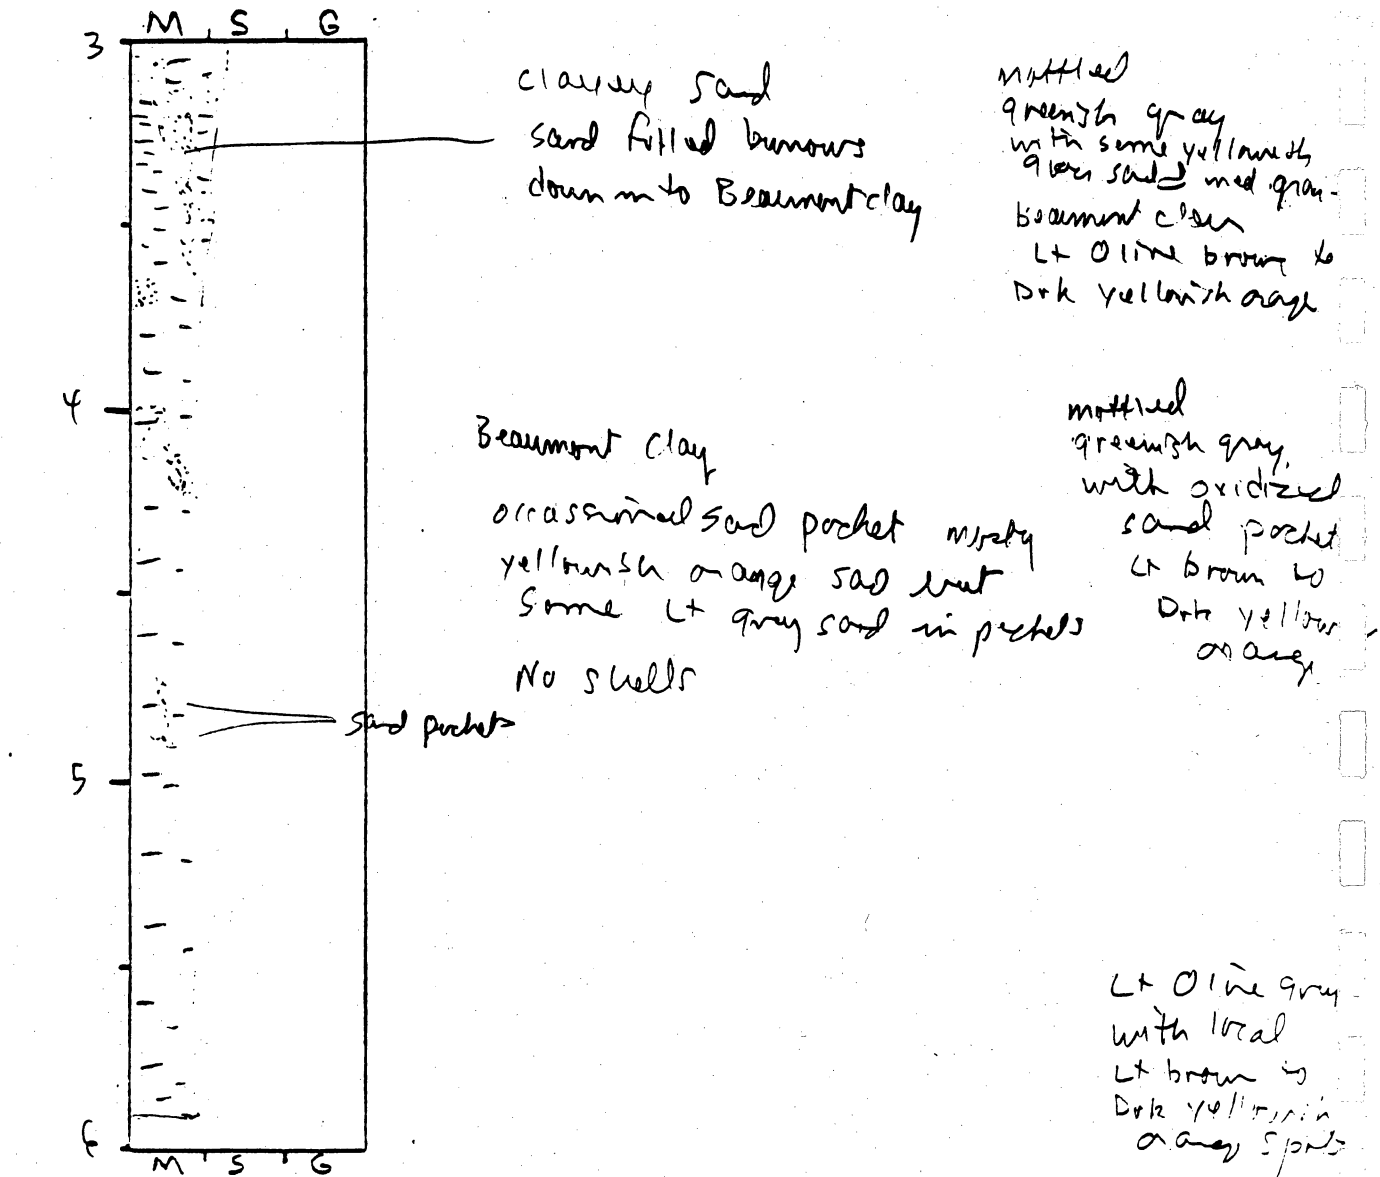 M S G
3
clayey sand
sand filled burrows
down into Beaumont clay
mottled
greenish gray
with some yellowish
gray sand med gray
beaumont clay
Lt Olive brown to
Drk yellowish orange
4
Beaumont clay
occassional sand pocket mostly
yellowish orange sand but
some Lt gray sand in pockets
No shells
mottled
greenish gray
with oxidized
sand pocket
Lt brown to
Drk yellow
orange
sand pockets
5
Lt Olive gray
with local
Lt brown to
Drk yellowish
orange spots
6
M S G